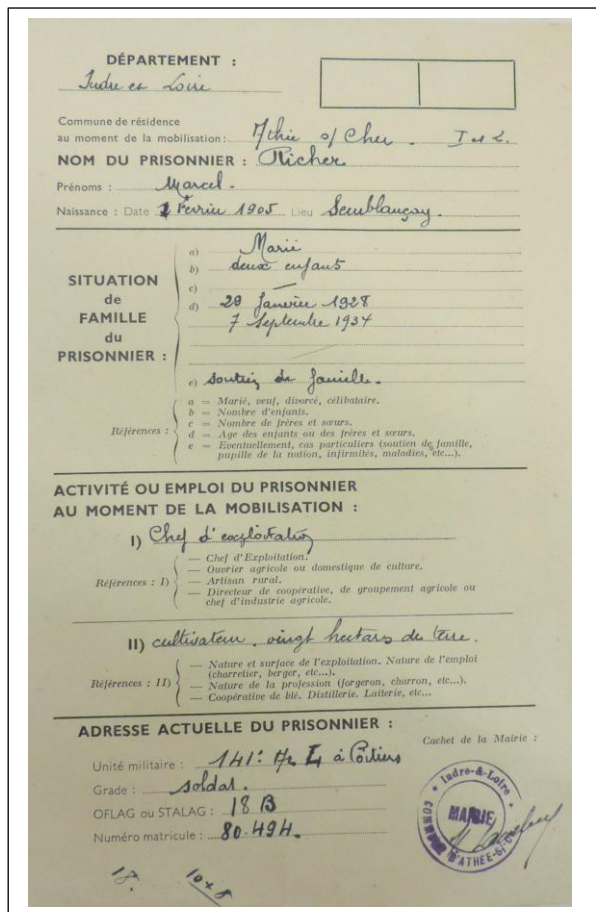 DÉPARTEMENT :
Indre et Loire
Commune de résidence
au moment de la mobilisation : Athée s/ Cher. I et L.
NOM DU PRISONNIER : Richer
Prénoms : Marcel.
Naissance : Date 2 Février 1905 Lieu Semblançay.
SITUATION
de
FAMILLE
du
PRISONNIER :
a) Marié
b) deux enfants
c) —
d) 29 Janvier 1928
7 Septembre 1934
e) soutien de famille.
Références :
a = Marié, veuf, divorcé, célibataire.
b = Nombre d'enfants.
c = Nombre de frères et sœurs.
d = Age des enfants ou des frères et sœurs.
e = Eventuellement, cas particuliers (soutien de famille,
pupille de la nation, infirmités, maladies, etc...).
ACTIVITÉ OU EMPLOI DU PRISONNIER
AU MOMENT DE LA MOBILISATION :
I) Chef d'exploitation
Références : I)
— Chef d'Exploitation.
— Ouvrier agricole ou domestique de culture.
— Artisan rural.
— Directeur de coopérative, de groupement agricole ou
chef d'industrie agricole.
II) cultivateur. vingt hectars de terre.
Références : II)
— Nature et surface de l'exploitation. Nature de l'emploi
(charretier, berger, etc...).
— Nature de la profession (forgeron, charron, etc...).
— Coopérative de blé. Distillerie. Laiterie, etc...
ADRESSE ACTUELLE DU PRISONNIER :
Cachet de la Mairie :
Unité militaire : 141e à Poitiers
Grade : soldat.
OFLAG ou STALAG : 18 B
Numéro matricule : 80.494.
Indre-&-Loire
MAIRIE
COMMUNE D'ATHÉE-S/-C
18. 10 x 8